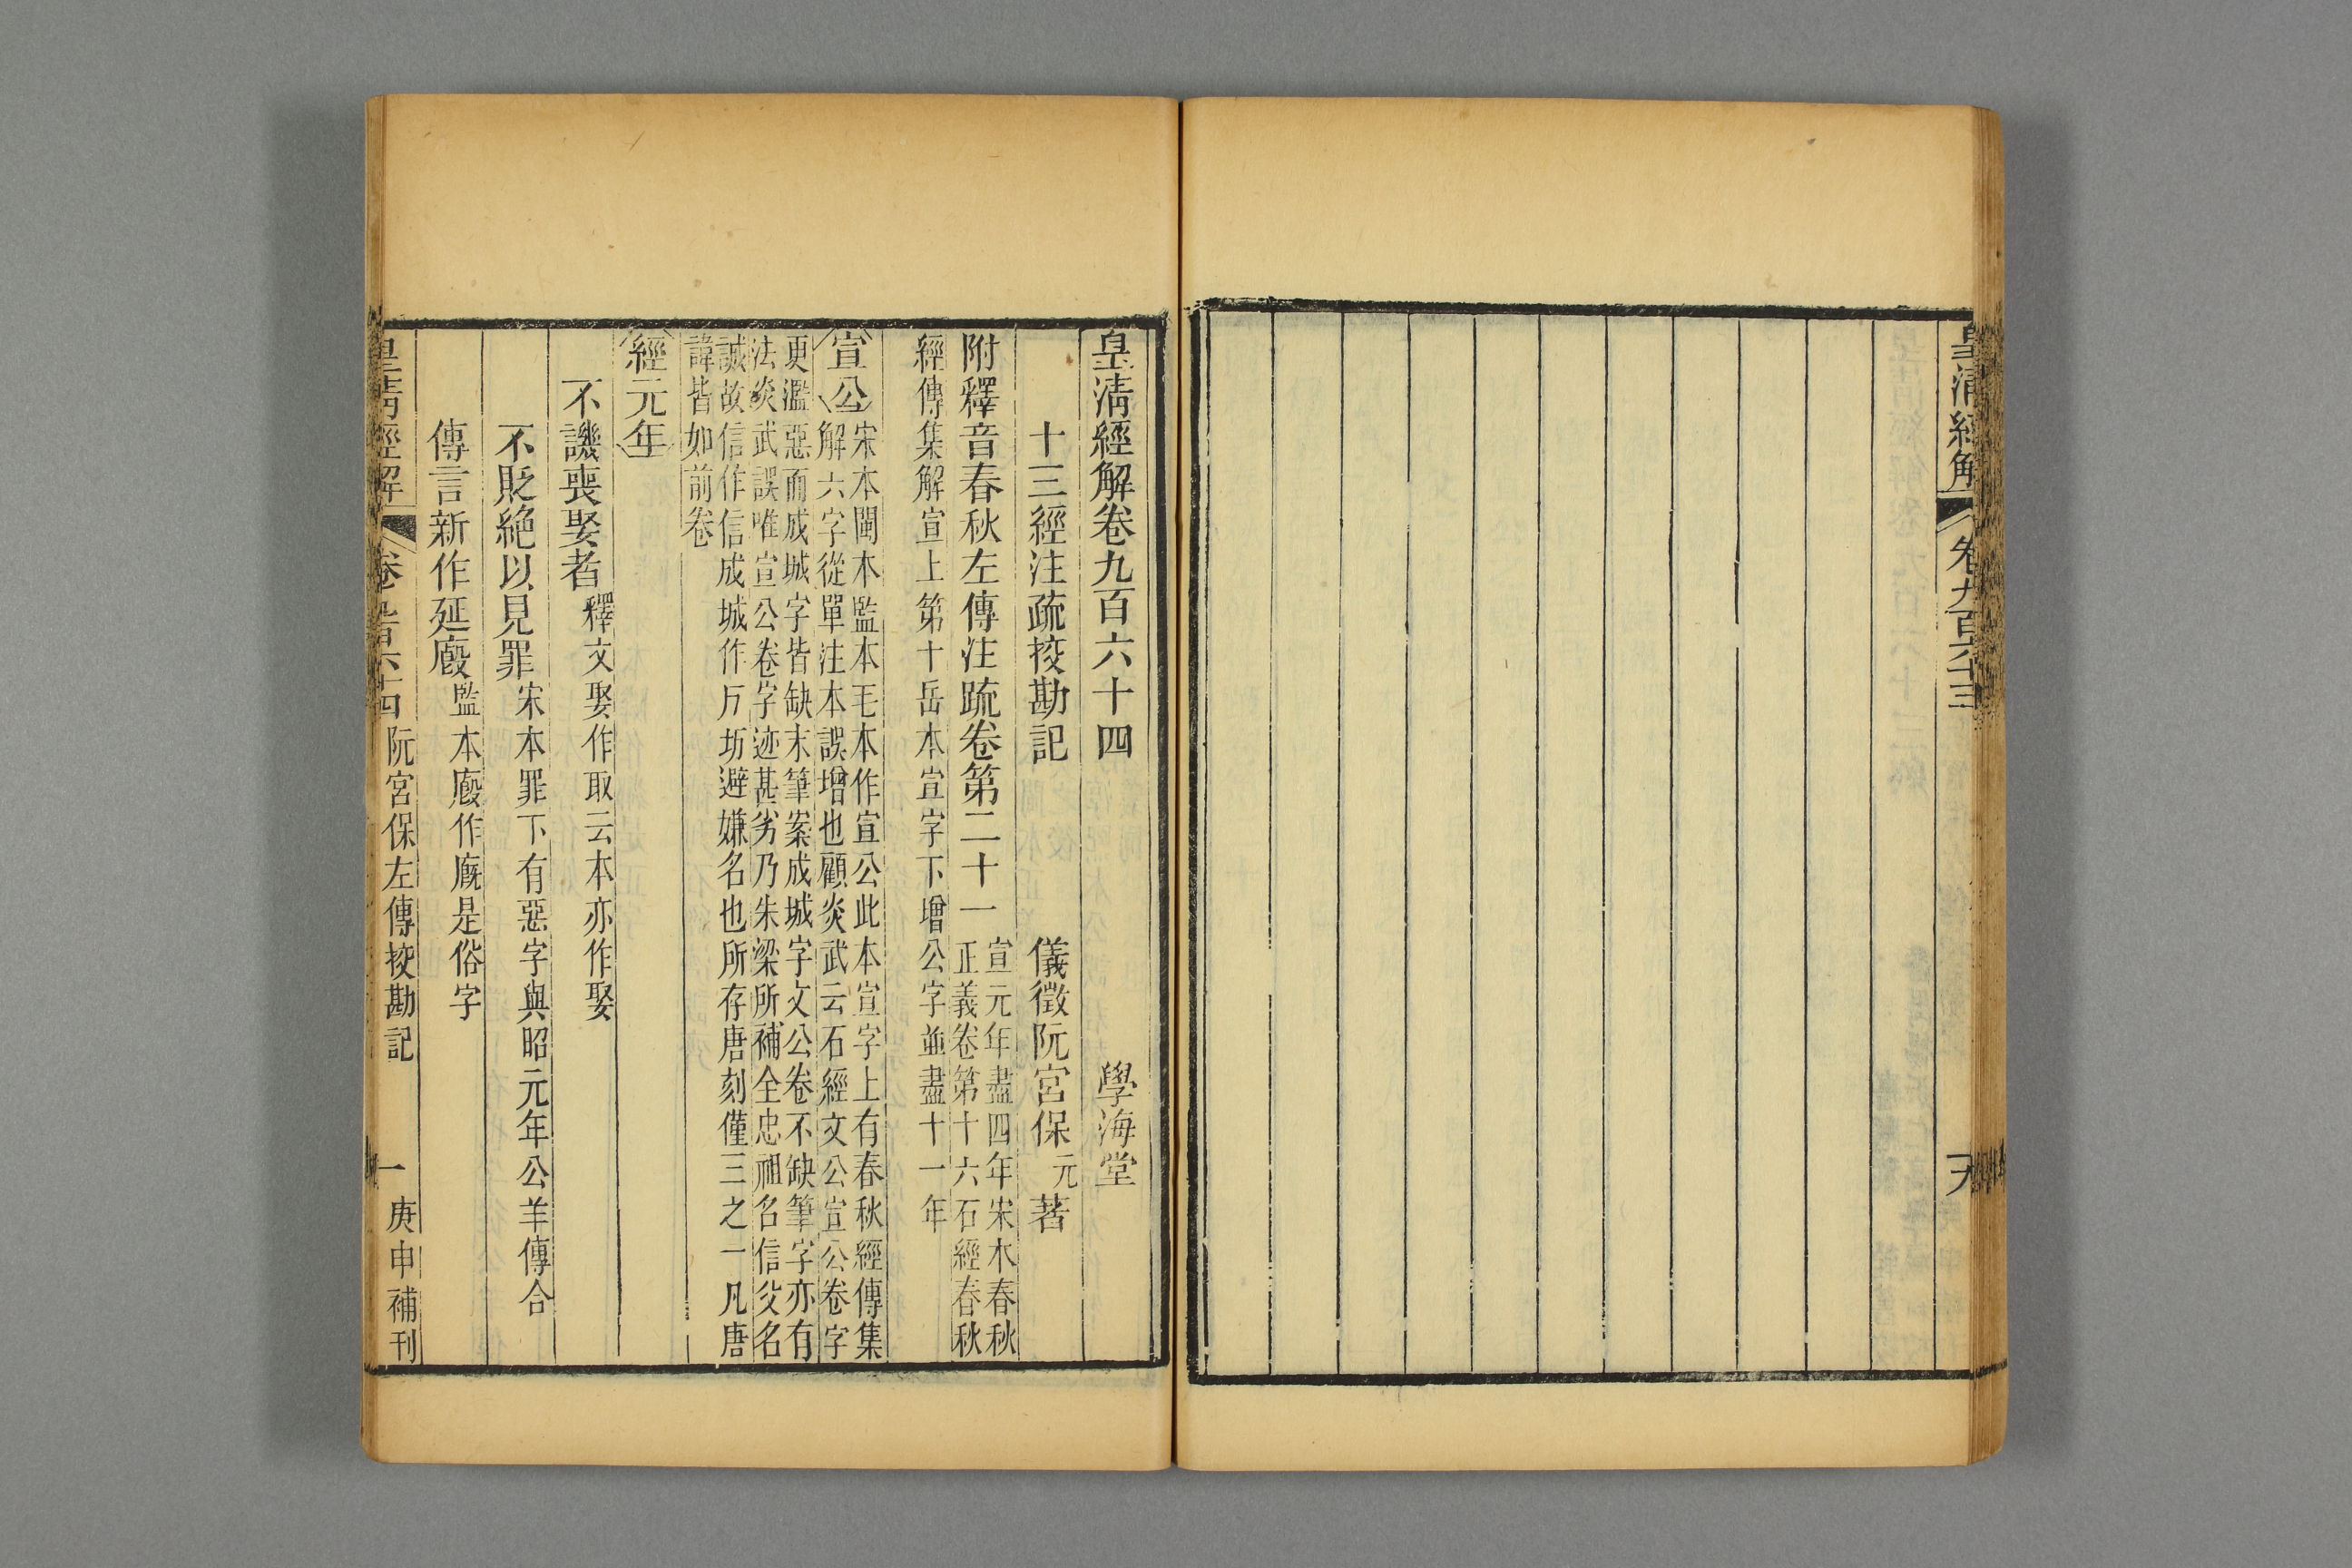 皇清經解
卷九百六十三
皇清經解卷九百六十四
學海堂
十三經注疏挍勘記
儀徵阮宮保元著
附釋音春秋左傳注疏卷第二十一
宣元年盡四年宋本春秋
正義卷第十六石經春秋
經傳集解宣上第十岳本宣字下增公字並盡十一年
宣公
宋本閩本監本毛本作宣公此本宣字上有春秋經傳集
解六字從單注本誤增也顧炎武云石經文公宣公卷字
更濫惡而成城字皆缺末筆案成城字文公卷不缺筆字亦有
法炎武誤唯宣公卷字迹甚劣乃朱梁所補全忠祖名信父名
誠故信作信成城作戶坊避嫌名也所存唐刻僅三之一凡唐
諱皆如前卷
經元年
不譏喪娶者釋文娶作取云本亦作娶
不貶絶以見罪宋本罪下有惡字與昭元年公羊傳合
傳言新作延廏監本廏作廐是俗字
皇清經解
卷九百六十四
阮宮保左傳挍勘記
一
庚申補刊